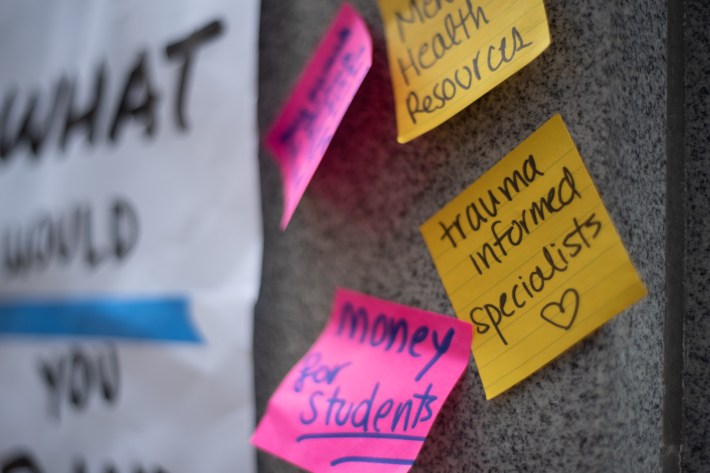 WHAT
WOULD
YOU
Health
Resources
trauma
informed
specialists ♡
money
for
students